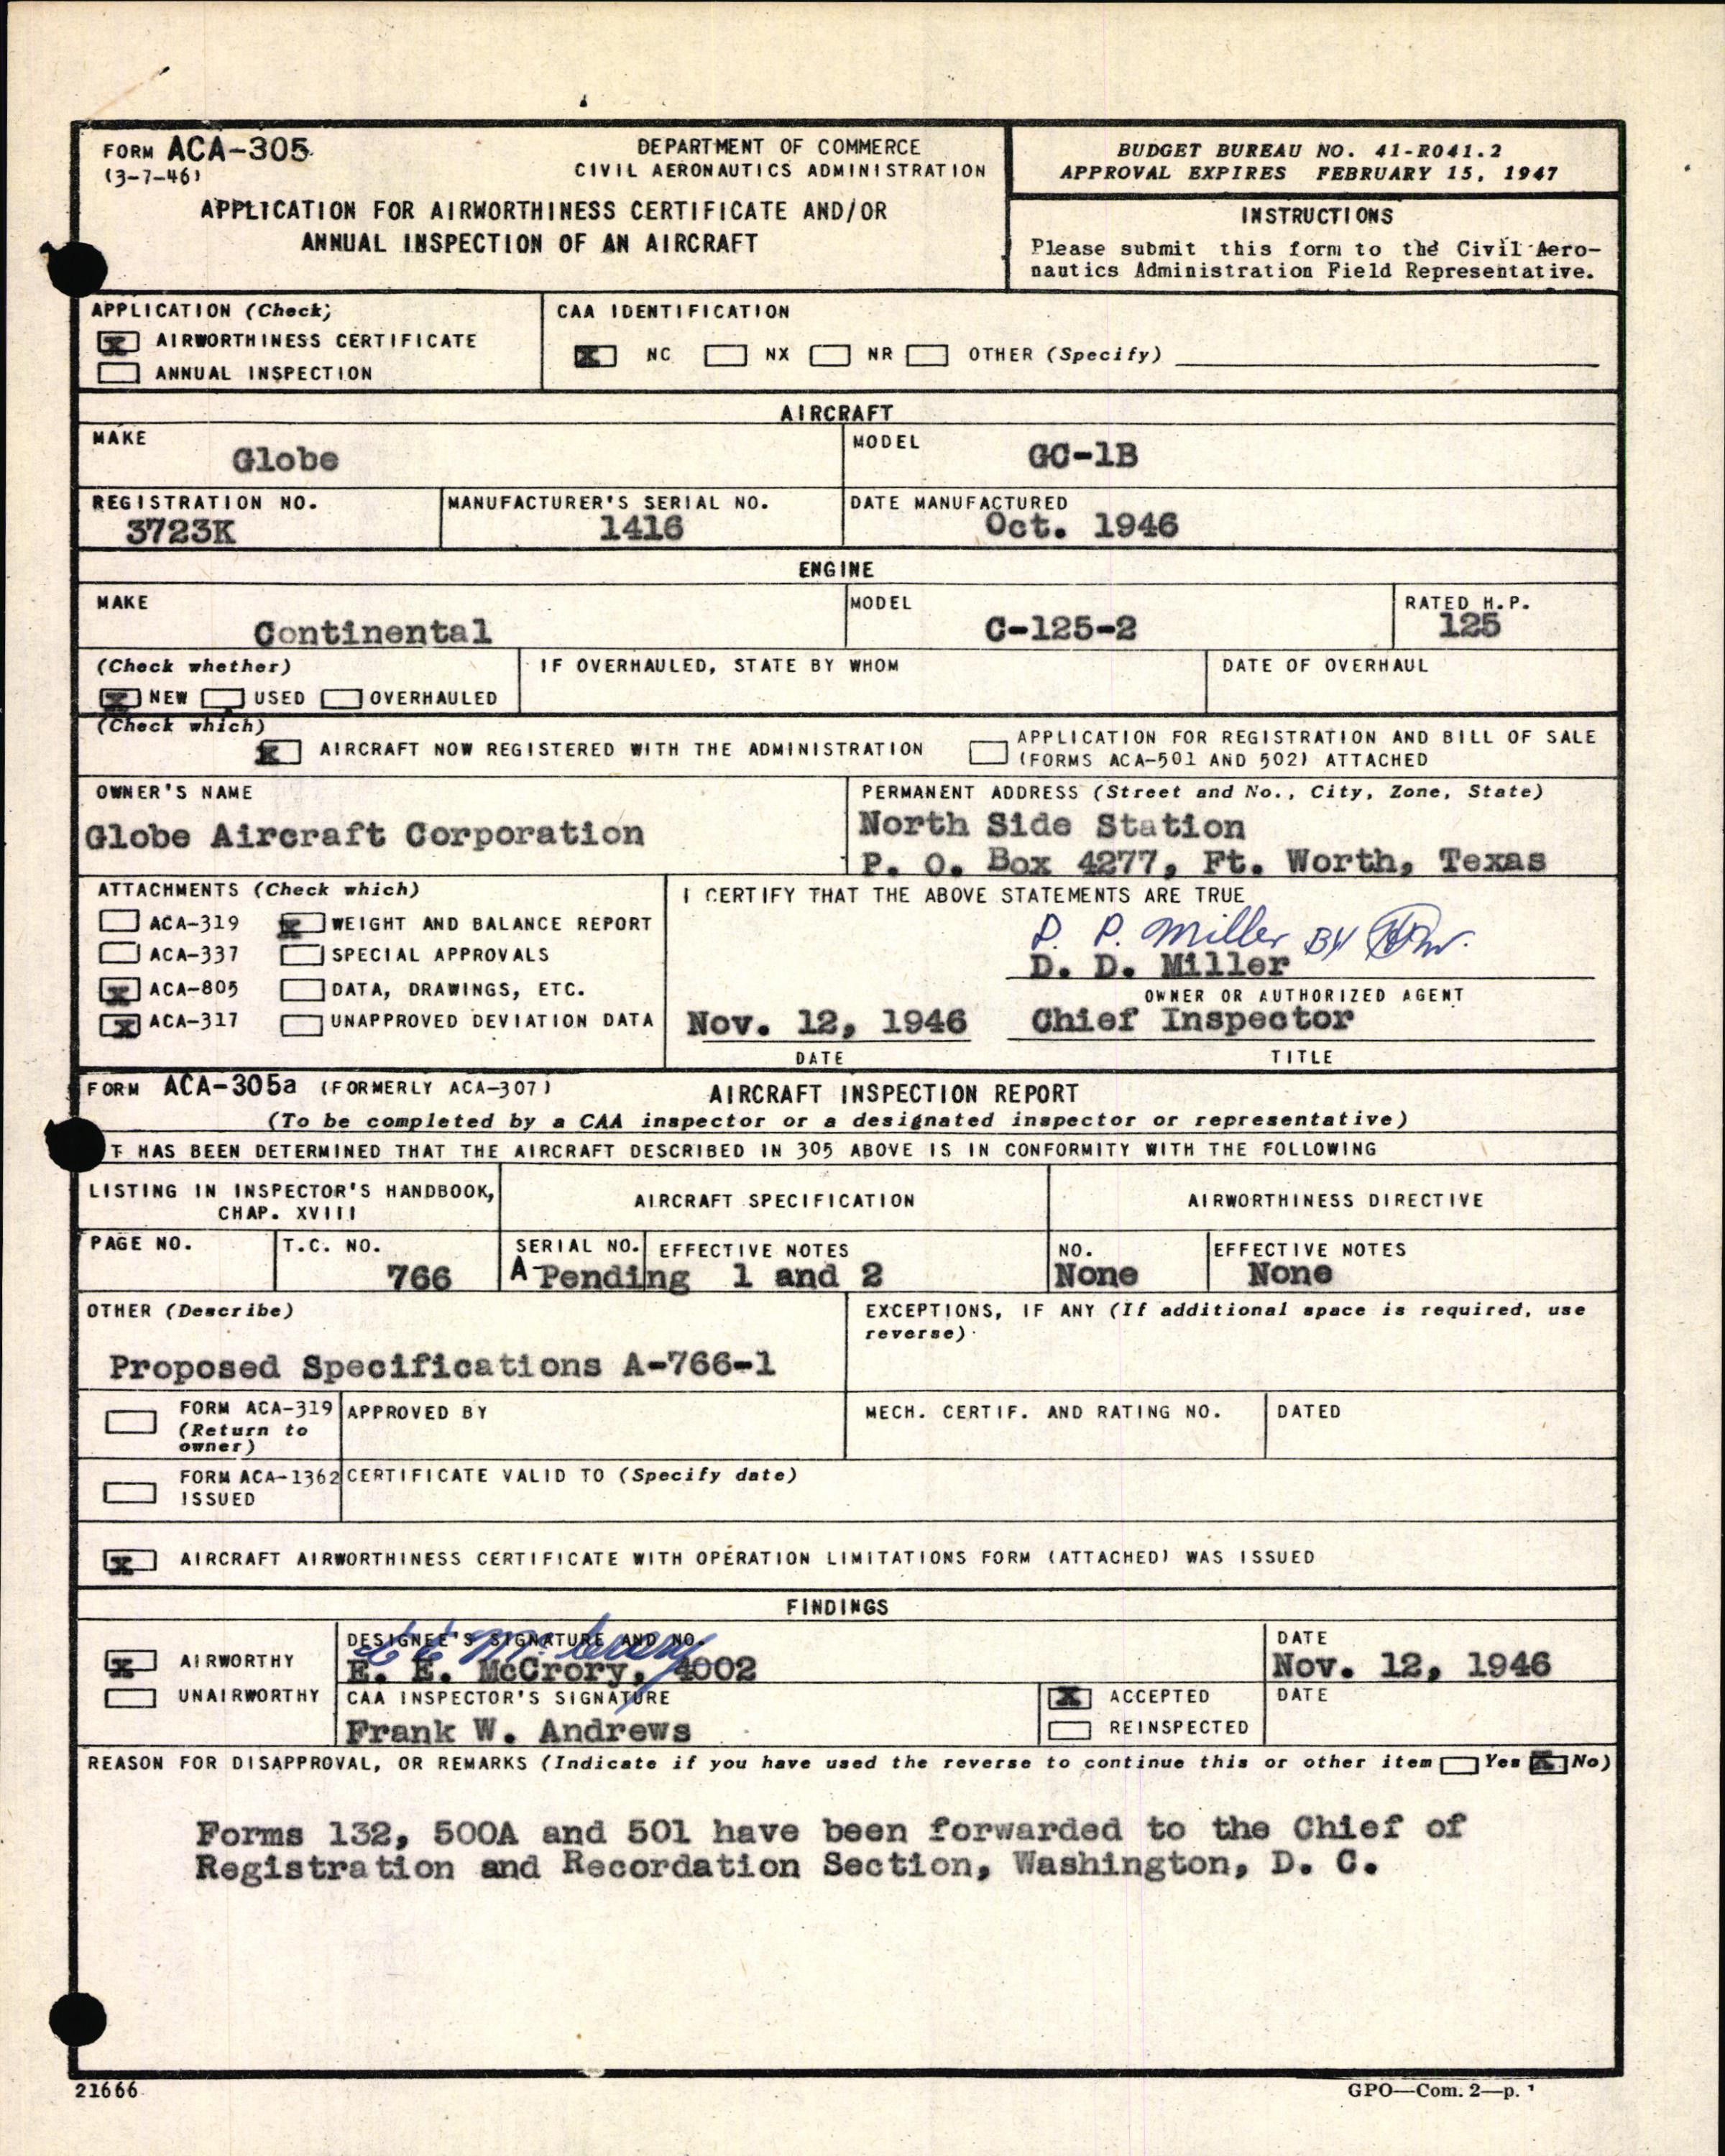 FORM ACA-305
(3-7-46)
DEPARTMENT OF COMMERCE
CIVIL AERONAUTICS ADMINISTRATION
APPLICATION FOR AIRWORTHINESS CERTIFICATE AND/OR
ANNUAL INSPECTION OF AN AIRCRAFT
BUDGET BUREAU NO. 41-R041.2
APPROVAL EXPIRES FEBRUARY 15, 1947
INSTRUCTIONS
Please submit this form to the Civil Aero-
nautics Administration Field Representative.
APPLICATION (Check)
X AIRWORTHINESS CERTIFICATE
ANNUAL INSPECTION
CAA IDENTIFICATION
X NC NX NR OTHER (Specify)
AIRCRAFT
MAKE
Globe
MODEL
GC-1B
REGISTRATION NO.
3723K
MANUFACTURER'S SERIAL NO.
1416
DATE MANUFACTURED
Oct. 1946
ENGINE
MAKE
Continental
MODEL
C-125-2
RATED H.P.
125
(Check whether)
X NEW USED OVERHAULED
IF OVERHAULED, STATE BY WHOM
DATE OF OVERHAUL
(Check which)
X AIRCRAFT NOW REGISTERED WITH THE ADMINISTRATION
APPLICATION FOR REGISTRATION AND BILL OF SALE
(FORMS ACA-501 AND 502) ATTACHED
OWNER'S NAME
Globe Aircraft Corporation
PERMANENT ADDRESS (Street and No., City, Zone, State)
North Side Station
P. O. Box 4277, Ft. Worth, Texas
ATTACHMENTS (Check which)
ACA-319 X WEIGHT AND BALANCE REPORT
ACA-337 SPECIAL APPROVALS
X ACA-805 DATA, DRAWINGS, ETC.
X ACA-317 UNAPPROVED DEVIATION DATA
I CERTIFY THAT THE ABOVE STATEMENTS ARE TRUE
D. D. Miller BY
D. D. Miller
OWNER OR AUTHORIZED AGENT
Nov. 12, 1946 Chief Inspector
DATE TITLE
FORM ACA-305a (FORMERLY ACA-307) AIRCRAFT INSPECTION REPORT
(To be completed by a CAA inspector or a designated inspector or representative)
T HAS BEEN DETERMINED THAT THE AIRCRAFT DESCRIBED IN 305 ABOVE IS IN CONFORMITY WITH THE FOLLOWING
LISTING IN INSPECTOR'S HANDBOOK,
CHAP. XVIII
AIRCRAFT SPECIFICATION
AIRWORTHINESS DIRECTIVE
PAGE NO.
T.C. NO.
766
SERIAL NO.
A-Pending
EFFECTIVE NOTES
1 and 2
NO.
None
EFFECTIVE NOTES
None
OTHER (Describe)
Proposed Specifications A-766-1
EXCEPTIONS, IF ANY (If additional space is required, use
reverse)
FORM ACA-319
(Return to
owner)
APPROVED BY
MECH. CERTIF. AND RATING NO.
DATED
FORM ACA-1362
ISSUED
CERTIFICATE VALID TO (Specify date)
X AIRCRAFT AIRWORTHINESS CERTIFICATE WITH OPERATION LIMITATIONS FORM (ATTACHED) WAS ISSUED
FINDINGS
X AIRWORTHY
UNAIRWORTHY
DESIGNEE'S SIGNATURE AND NO.
E E McCrory
E. E. McCrory, 4002
DATE
Nov. 12, 1946
CAA INSPECTOR'S SIGNATURE
Frank W. Andrews
X ACCEPTED
REINSPECTED
DATE
REASON FOR DISAPPROVAL, OR REMARKS (Indicate if you have used the reverse to continue this or other item Yes X No)
Forms 132, 500A and 501 have been forwarded to the Chief of
Registration and Recordation Section, Washington, D. C.
21666
GPO—Com. 2—p.